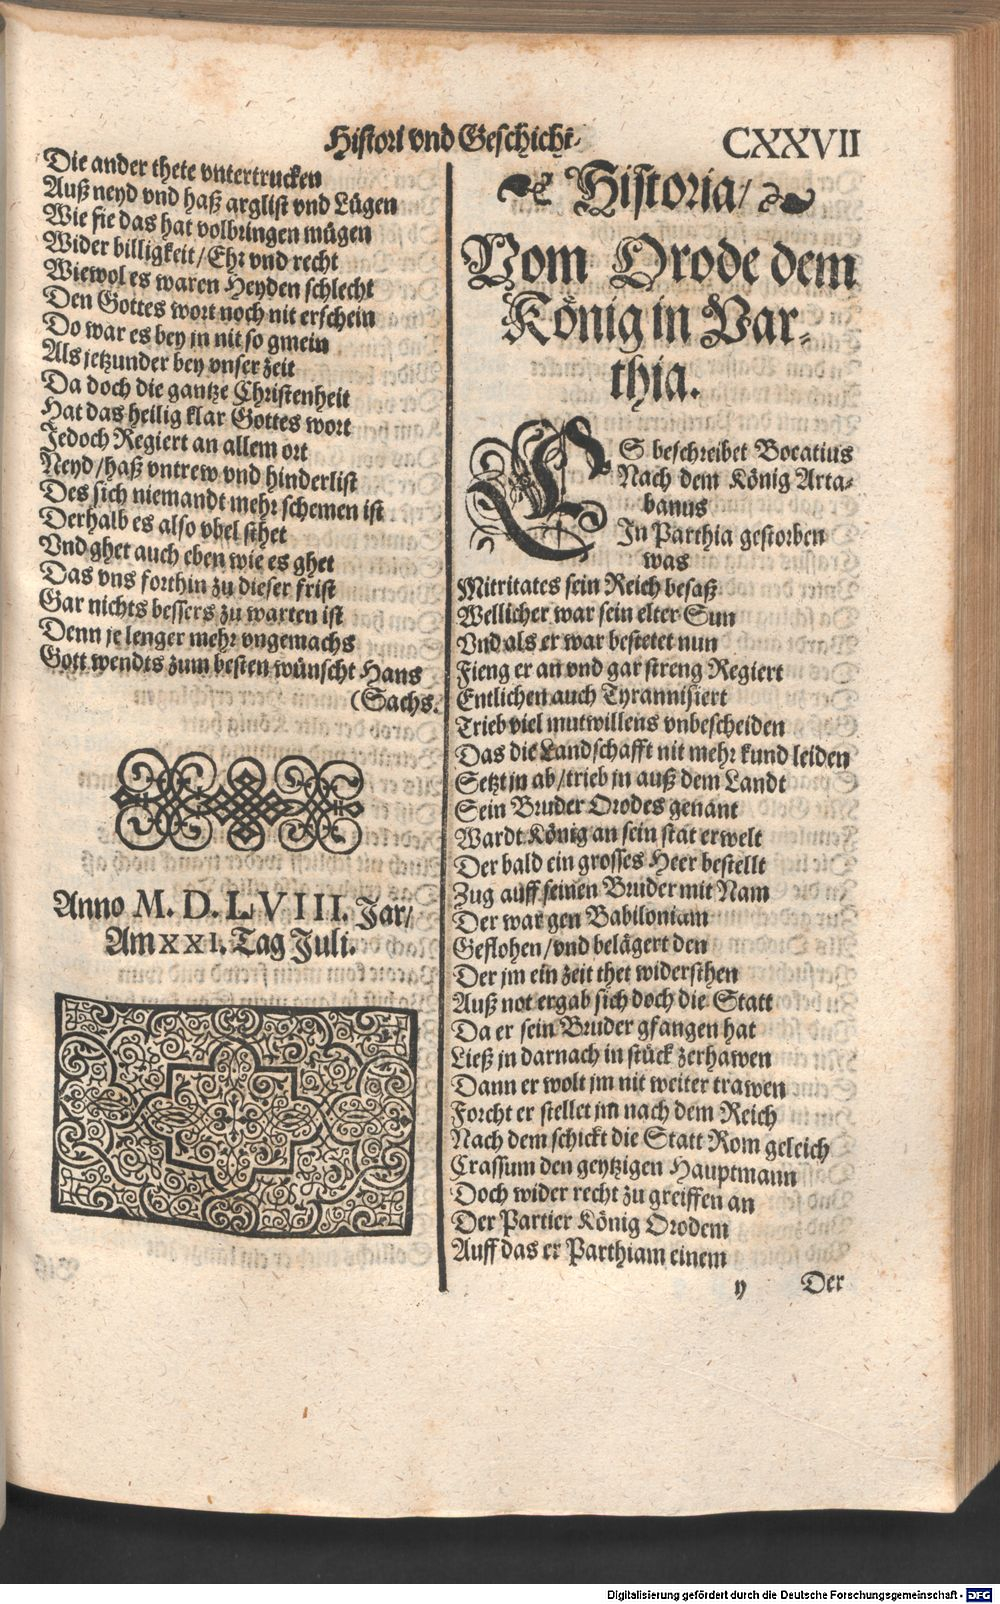 Histori vnd Geschicht.
CXXVII
Die ander thete vntertrucken
Auß neyd vnd haß arglist vnd Lügen
Wie sie das hat volbringen mügen
Wider billigkeit/Ehr vnd recht
Wiewol es waren Heyden schlecht
Den Gottes wort noch nit erschein
Do war es bey jn nit so gmein
Als jetzunder bey vnser zeit
Da doch die gantze Christenheit
Hat das heilig klar Gottes wort
Jedoch Regiert an allem ort
Neyd/haß vntrew vnd hinderlist
Des sich niemandt mehr schemen ist
Derhalb es also vbel sthet
Vnd ghet auch eben wie es ghet
Das vns forthin zu dieser frist
Gar nichts bessers zu warten ist
Denn je lenger mehr vngemachs
Gott wendts zum besten wünscht Hans
(Sachs.
Anno M. D. LVIII. Jar/
Am XXI. Tag Juli.
Historia/
Vom Orode dem
König in Par-
thia.
ES beschreibet Bocatius
Nach dem König Arta-
banus
In Parthia gestorben
was
Mitritates sein Reich besaß
Wellicher war sein elter Sun
Vnd als er war bestetet nun
Fieng er an vnd gar streng Regiert
Entlichen auch Tyrannisiert
Trieb viel mutwillens vnbescheiden
Das die Landschafft nit mehr kund leiden
Setzt jn ab/trieb jn auß dem Landt
Sein Bruder Orodes genant
Wardt König an sein stat erwelt
Der bald ein grosses Heer bestellt
Zug auff seinen Bruder mit Nam
Der war gen Babiloniam
Geflohen/vnd belägert den
Der jm ein zeit thet widersthen
Auß not ergab sich doch die Statt
Da er sein Bruder gfangen hat
Ließ jn darnach in stück zerhawen
Dann er wolt jm nit weiter trawen
Forcht er stellet jm nach dem Reich
Nach dem schickt die Statt Rom geleich
Crassum den geytzigen Hauptmann
Doch wider recht zu greiffen an
Der Partier König Orodem
Auff das er Parthiam einem
y
Der
Digitalisierung gefördert durch die Deutsche Forschungsgemeinschaft - DFG